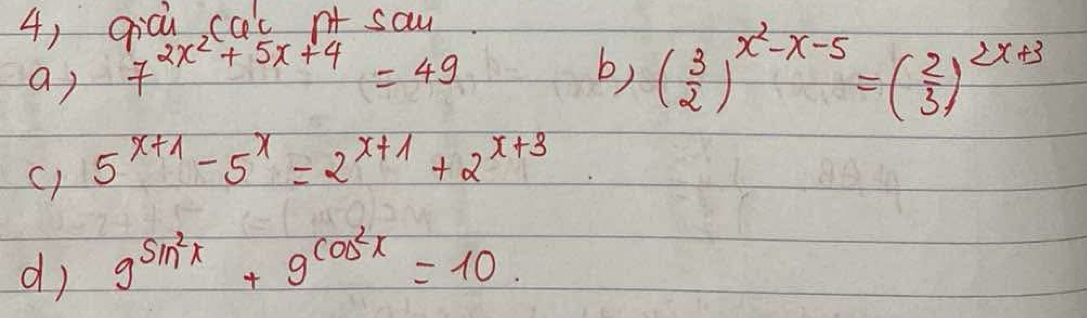 4, giải các pt sau.
a, 7^{2x² + 5x + 4} = 49 b, (3/2)^{x² - x - 5} = (2/3)^{2x+3}
c, 5^{x+1} - 5^{x} = 2^{x+1} + 2^{x+3}.
d) 9^{sin²x} + 9^{cos²x} = 10.